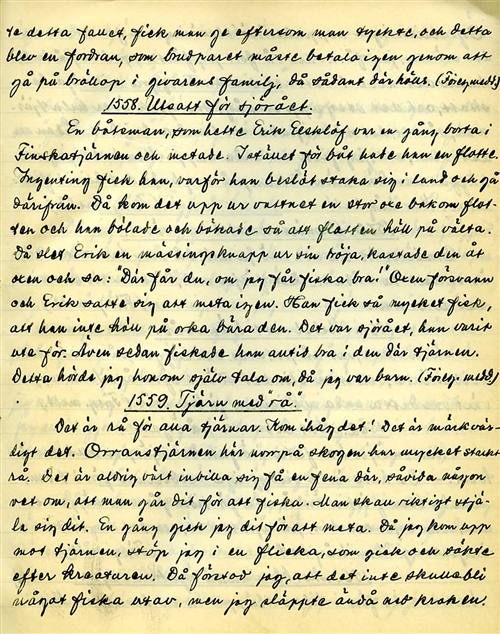 te detta fallet, fick man ge eftersom man tyckte, och detta
blev en fordran, som brudparet måste betala igen genom att
gå på bröllop i givarens familj, då sådant där hölls. (Föreg. medd.)
1558. Utsatt för sjörået.
En båtsman, som hette Erik Elsklöf var en gång borta i
Finskatjärnen och metade. I stället för båt hade han en flotte.
Ingenting fick han, varför han beslöt staka sig i land och gå
därifrån. Då kom det upp ur vattnet en stor oxe bakom flot-
ten och han bölade och bökade så att flotten höll på välta.
Då slet Erik en mässingsknapp ur sin tröja, kastade den åt
oxen och sa: "Där får du, om jag får fiska bra!" Oxen försvann
och Erik satte sig att meta igen. Han fick så mycket fisk,
att han inte höll på orka bära den. Det var sjörået, han varit
ute för. Även sedan fiskade han alltid bra i den där tjärnen.
Detta hörde jag honom själv tala om, då jag var barn. (Föreg. medd.)
1559. Tjärn med "rå".
Det är rå för alla tjärnar. Kom ihåg det! Det är märkvär-
digt det. Orranstjärnen här norr på skogen har mycket starkt
rå. Det är aldrig värt inbilla sig få en fena där, såvida någon
vet om, att man går dit för att fiska. Man skall riktigt stjä-
la sig dit. En gång gick jag dit för att meta. Då jag kom upp
mot tjärnen, stöp jag i en flicka, som gick och sökte
efter kreaturen. Då förstod jag, att det inte skulle bli
något fiska utav, men jag släppte ändå ned kroken.